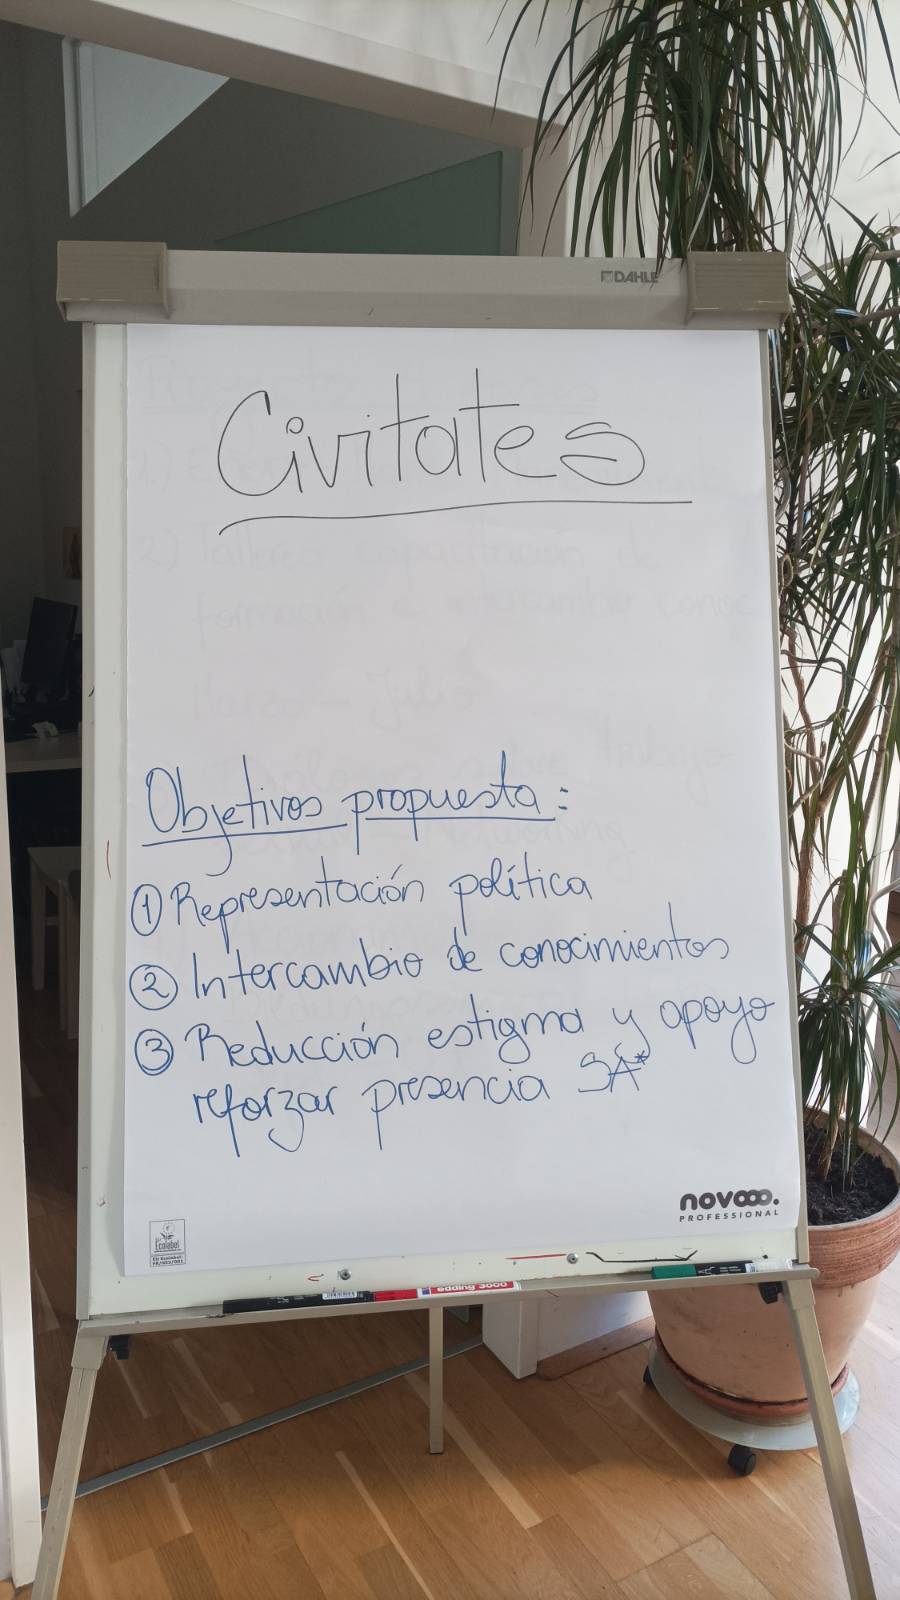 DAHLE
Civitates
Objetivos propuesta:
① Representación política
② Intercambio de conocimientos
③ Reducción estigma y apoyo
reforzar presencia SA*
novooo.
PROFESSIONAL
Ecolabel
edding 3000